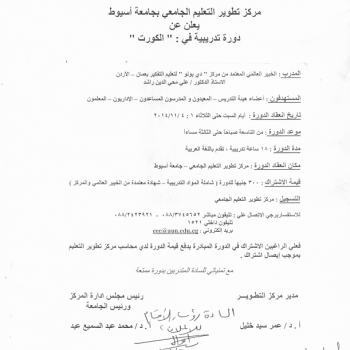 مركز تطوير التعليم الجامعي بجامعة أسيوط
يعلن عن
دورة تدريبية في : " الكورت "
المدرب : الخبير العالمي المعتمد من مركز " دي بونو " لتعليم التفكير بعمان – الأردن
الاستاذ الدكتور / علي محي الدين راشد
المستهدفون : أعضاء هيئة التدريس – المعيدون و المدرسون المساعدون – الإداريون – المعلمون
تاريخ انعقاد الدورة : أيام السبت حتى الثلاثاء ١ : ٢٠١٤/١١/٤
موعد الدورة : من التاسعة صباحا حتى الثالثة مساءا
مدة الدورة : ١٨ ساعة تدريبية ، تقدم باللغة العربية
مكان انعقاد الدورة : مركز تطوير التعليم الجامعي – جامعة أسيوط
قيمة الاشتراك : ٣٠٠ جنيها للدورة ( شاملة المواد التدريبية – شهادة معتمدة من الخبير العالمي والمركز )
التسجيل : مركز تطوير التعليم الجامعي
للاستفسار يرجي الاتصال على : تليفون مباشر ٠٨٨/٣٧٤٥٦٥٢ ، ٠٨٨/٢٤٢٣٩٢١
تليفون داخلي ١٦٥٢
بريد إلكتروني : ecc@aun.edu.eg
فعلي الراغبين الاشتراك في الدورة المبادرة بدفع قيمة الدورة لدي محاسب مركز تطوير التعليم
بموجب إيصال اشتراك .
مع تمنياتي للسادة المتدربين بدورة ممتعة
مدير مركز التطوير
رئيس مجلس ادارة المركز
ورئيس الجامعة
السادة رؤساء الأقسام
أ.د/ عمر سيد خليل
أ.د/ محمد عبد السميع عيد